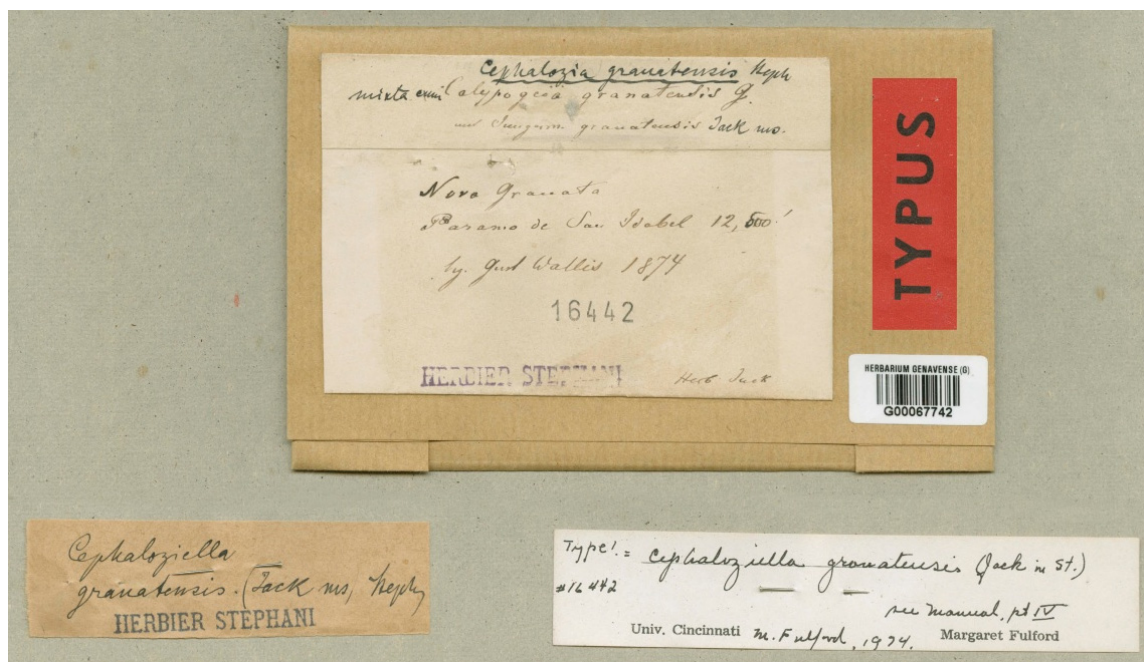 Cephalozia granatensis Steph
mixta cum Calypogeia granatensis G.
Jungerm granatensis Jack ms.
Nova Granata
Paramo de San Isabel 12,500'
lg. Gust Wallis 1874
16442
HERBIER STEPHANI
Herb Jack
TYPUS
HERBARIUM GENAVENSE (G)
G00067742
Cephaloziella
granatensis. (Jack ms, Steph)
HERBIER STEPHANI
Type! = Cephaloziella granatensis (Jack in St.)
#16442
see Manual, pt IV
Univ. Cincinnati M. Fulford, 1974. Margaret Fulford